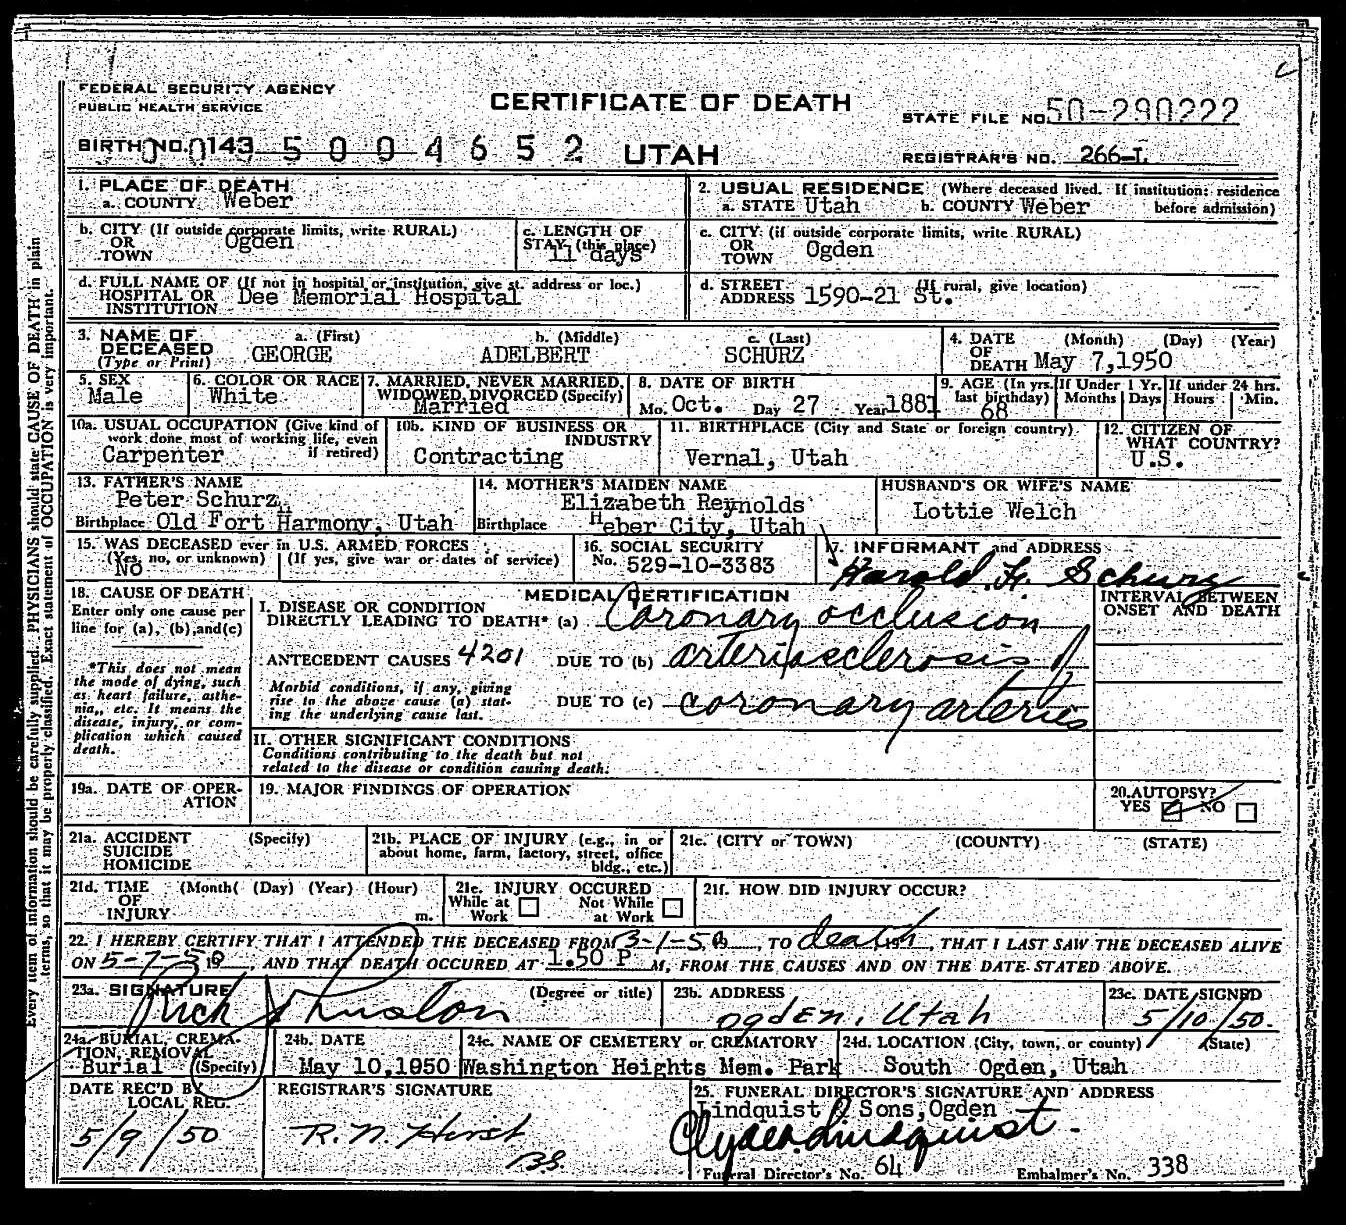 FEDERAL SECURITY AGENCY
PUBLIC HEALTH SERVICE
CERTIFICATE OF DEATH
STATE FILE NO. 50-290222
BIRTH NO. 0143 5 0 0 4 6 5 2
UTAH
REGISTRAR'S NO. 266-I
1. PLACE OF DEATH
a. COUNTY Weber
2. USUAL RESIDENCE (Where deceased lived. If institution: residence before admission)
a. STATE Utah b. COUNTY Weber
b. CITY (If outside corporate limits, write RURAL)
OR
TOWN Ogden
c. LENGTH OF
STAY (this place)
11 days
c. CITY (if outside corporate limits, write RURAL)
OR
TOWN Ogden
d. FULL NAME OF (If not in hospital or institution, give st. address or loc.)
HOSPITAL OR
INSTITUTION Dee Memorial Hospital
d. STREET (If rural, give location)
ADDRESS 1590-21 St.
3. NAME OF
DECEASED
(Type or Print)
a. (First) b. (Middle) c. (Last)
GEORGE ADELBERT SCHURZ
4. DATE (Month) (Day) (Year)
OF
DEATH May 7,1950
5. SEX
Male
6. COLOR OR RACE
White
7. MARRIED, NEVER MARRIED,
WIDOWED, DIVORCED (Specify)
Married
8. DATE OF BIRTH
Mo. Oct. Day 27 Year 1881
9. AGE (In yrs. last birthday)
68
If Under 1 Yr.
Months Days
If under 24 hrs.
Hours Min.
10a. USUAL OCCUPATION (Give kind of work done most of working life, even if retired)
Carpenter
10b. KIND OF BUSINESS OR INDUSTRY
Contracting
11. BIRTHPLACE (City and State or foreign country)
Vernal, Utah
12. CITIZEN OF
WHAT COUNTRY?
U.S.
13. FATHER'S NAME
Peter Schurz
Birthplace Old Fort Harmony, Utah
14. MOTHER'S MAIDEN NAME
Elizabeth Reynolds
Birthplace Heber City, Utah
HUSBAND'S OR WIFE'S NAME
Lottie Welch
15. WAS DECEASED ever in U.S. ARMED FORCES
(Yes, no, or unknown) (If yes, give war or dates of service)
No
16. SOCIAL SECURITY
No. 529-10-3383
17. INFORMANT and ADDRESS
Harold H. Schurz
18. CAUSE OF DEATH
Enter only one cause per line for (a), (b), and (c)
*This does not mean the mode of dying, such as heart failure, asthenia, etc. It means the disease, injury, or complication which caused death.
MEDICAL CERTIFICATION
I. DISEASE OR CONDITION
DIRECTLY LEADING TO DEATH* (a) Coronary occlusion
ANTECEDENT CAUSES 4201 DUE TO (b) arteriosclerosis of
Morbid conditions, if any, giving rise to the above cause (a) stating the underlying cause last.
DUE TO (c) coronary arteries
INTERVAL BETWEEN
ONSET AND DEATH
II. OTHER SIGNIFICANT CONDITIONS
Conditions contributing to the death but not
related to the disease or condition causing death.
19a. DATE OF OPERATION
19. MAJOR FINDINGS OF OPERATION
20. AUTOPSY?
YES NO
21a. ACCIDENT (Specify)
SUICIDE
HOMICIDE
21b. PLACE OF INJURY (e.g., in or about home, farm, factory, street, office bldg., etc.)
21c. (CITY or TOWN) (COUNTY) (STATE)
21d. TIME (Month( (Day) (Year) (Hour)
OF
INJURY m.
21e. INJURY OCCURED
While at Work Not While at Work
21f. HOW DID INJURY OCCUR?
22. I HEREBY CERTIFY THAT I ATTENDED THE DECEASED FROM 3-1-50, TO death, 19, THAT I LAST SAW THE DECEASED ALIVE
ON 5-7-50, AND THAT DEATH OCCURED AT 1.50 P M, FROM THE CAUSES AND ON THE DATE STATED ABOVE.
23a. SIGNATURE (Degree or title)
23b. ADDRESS
Ogden, Utah
23c. DATE SIGNED
5/10/50.
24a. BURIAL, CREMATION, REMOVAL (Specify)
Burial
24b. DATE
May 10,1950
24c. NAME OF CEMETERY or CREMATORY
Washington Heights Mem. Park
24d. LOCATION (City, town, or county) (State)
South Ogden, Utah
DATE REC'D BY
LOCAL REG.
5/9/50
REGISTRAR'S SIGNATURE
R. N. Hirst
BS.
25. FUNERAL DIRECTOR'S SIGNATURE AND ADDRESS
Lindquist & Sons, Ogden
Clyde Lindquist
Funeral Director's No. 64 Embalmer's No. 338
Every item of information should be carefully supplied. PHYSICIANS should state CAUSE OF DEATH in plain
terms, so that it may be properly classified. Exact statement of OCCUPATION is very important.